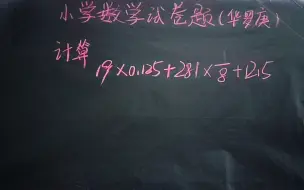 小学数学试卷题(华罗庚)
计算
19×0.125+281×1/8+12.5